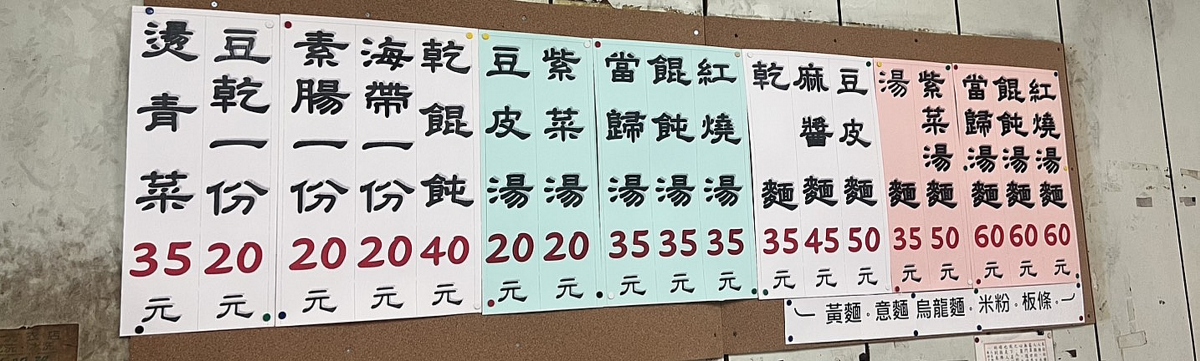 紅燒湯麵60元
餛飩湯麵60元
當歸湯麵60元
紫菜湯麵50元
湯麵35元
豆皮麵50元
麻醬麵45元
乾麵35元
紅燒湯35元
餛飩湯35元
當歸湯35元
紫菜湯20元
豆皮湯20元
乾餛飩40元
海帶一份20元
素腸一份20元
豆乾一份20元
燙青菜35元
黃麵。意麵 烏龍麵。米粉。板條。